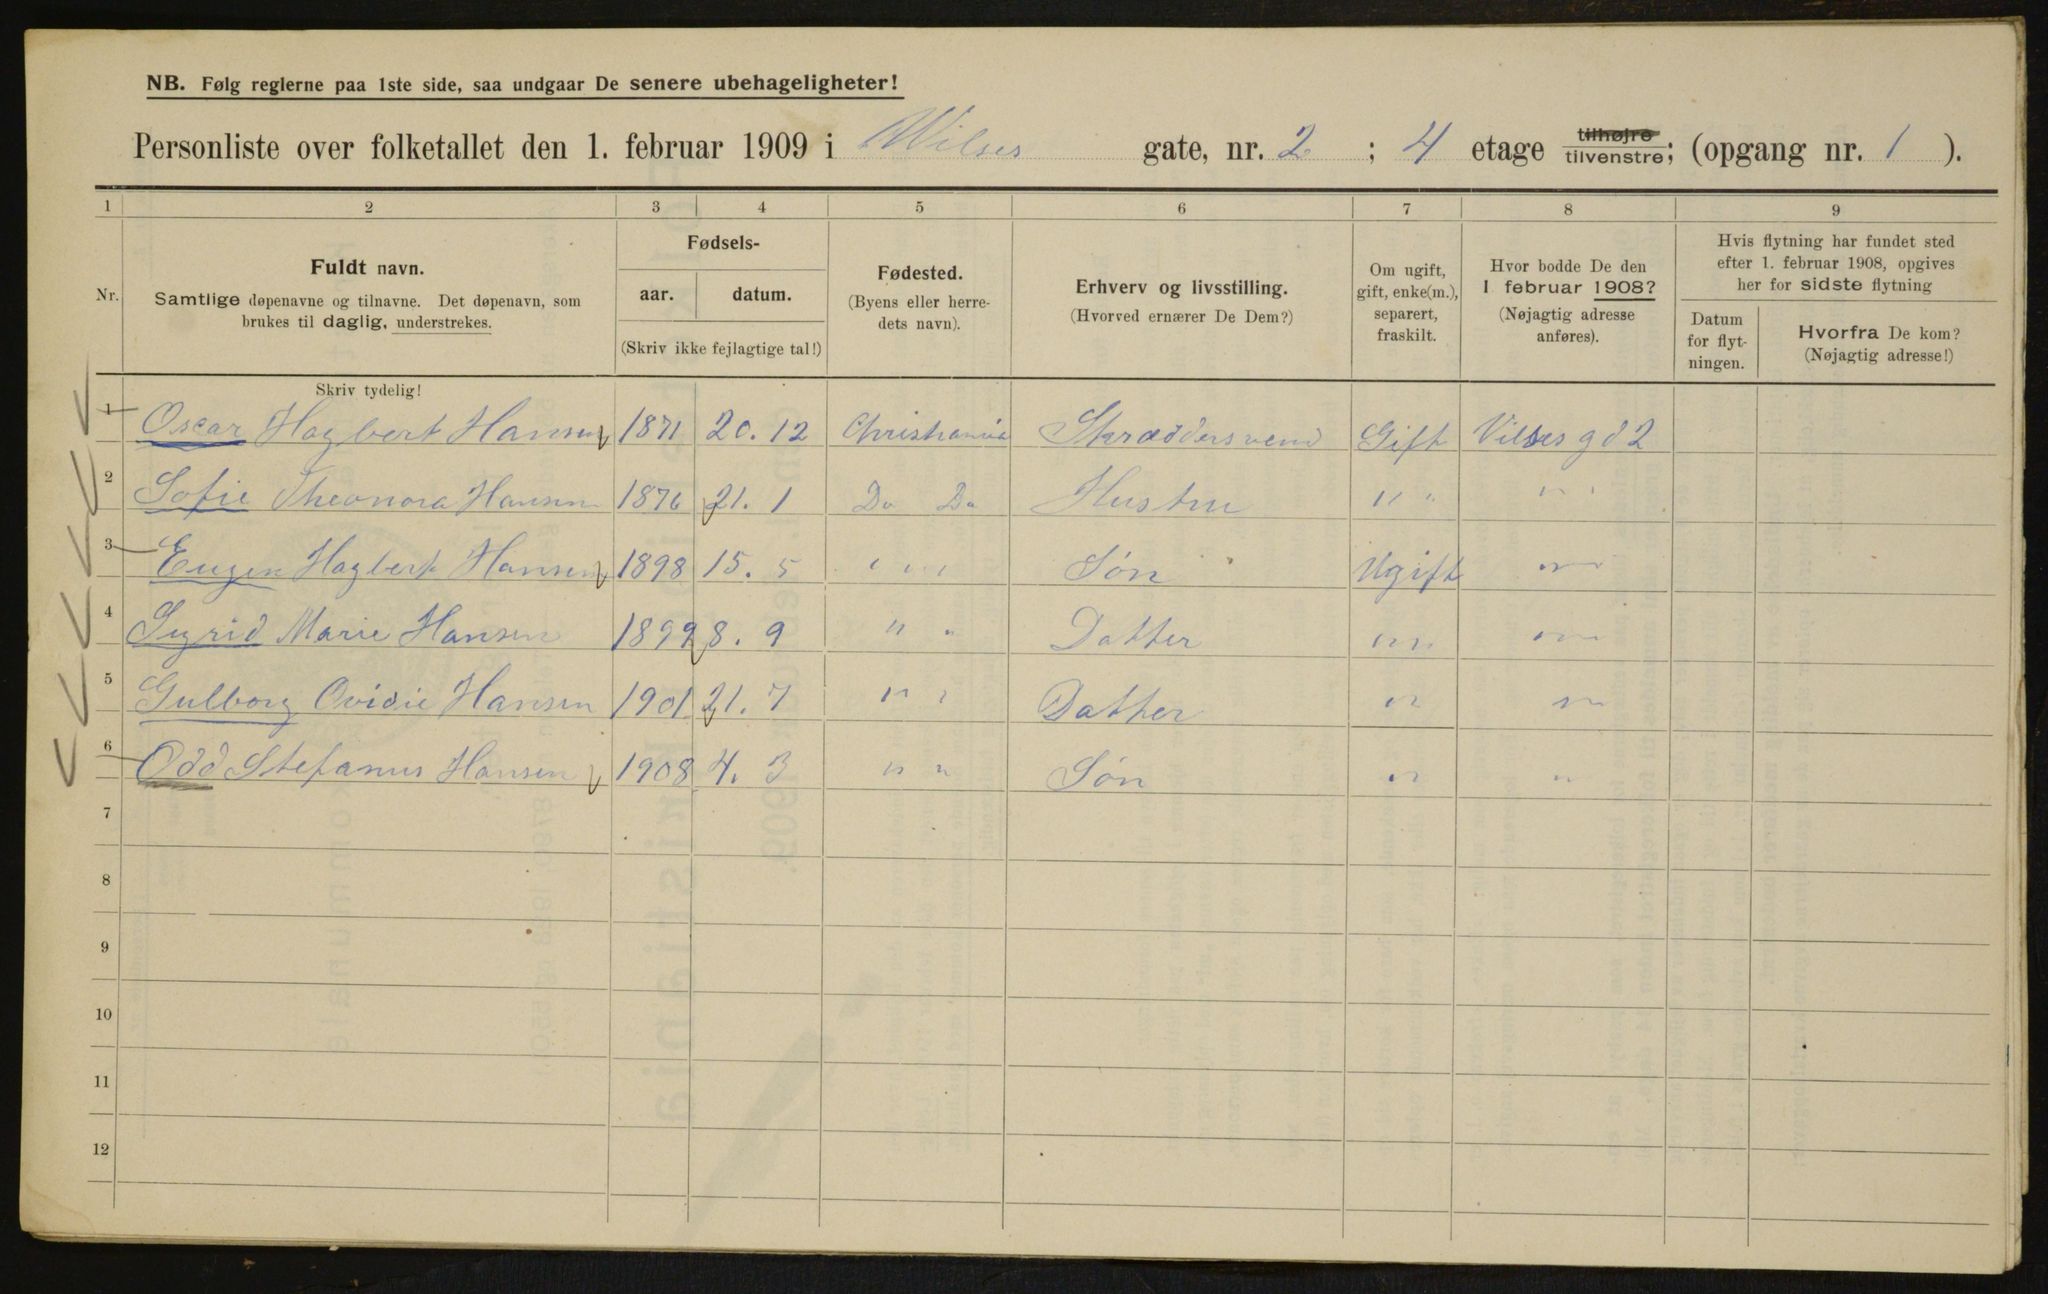 NB. Følg reglerne paa 1ste side, saa undgaar De senere ubehageligheter!
Personliste over folketallet den 1. februar 1909 i Wilses gate, nr. 2 ; 4 etage tilhøjre tilvenstre; (opgang nr. 1 ).
1 2 3 4 5 6 7 8 9
Nr.
Fuldt navn.
Samtlige døpenavne og tilnavne. Det døpenavn, som
brukes til daglig, understrekes.
Fødsels-
aar. datum.
(Skriv ikke fejlagtige tal!)
Fødested.
(Byens eller herre-
dets navn).
Erhverv og livsstilling.
(Hvorved ernærer De Dem?)
Om ugift,
gift, enke(m.),
separert,
fraskilt.
Hvor bodde De den
1 februar 1908?
(Nøjagtig adresse
anføres).
Hvis flytning har fundet sted
efter 1. februar 1908, opgives
her for sidste flytning
Datum
for flyt-
ningen.
Hvorfra De kom?
(Nøjagtig adresse!)
Skriv tydelig!
1 Oscar Hagbert Hansen 1871 20. 12 Christiania Skræddersvend Gift Vilses gd 2
2 Sofie Theonora Hansen 1876 21. 1 Do Do Hustru " " " "
3 Eugen Hagbert Hansen 1898 15. 5 " " " Søn Ugift " "
4 Sigrid Marie Hansen 1899 8. 9 " " Datter " " " "
5 Gulborg Ovidie Hansen 1901 21. 7 " " Datter " "
6 Odd Stefanus Hansen 1908 4. 3 " " Søn " "
7
8
9
10
11
12